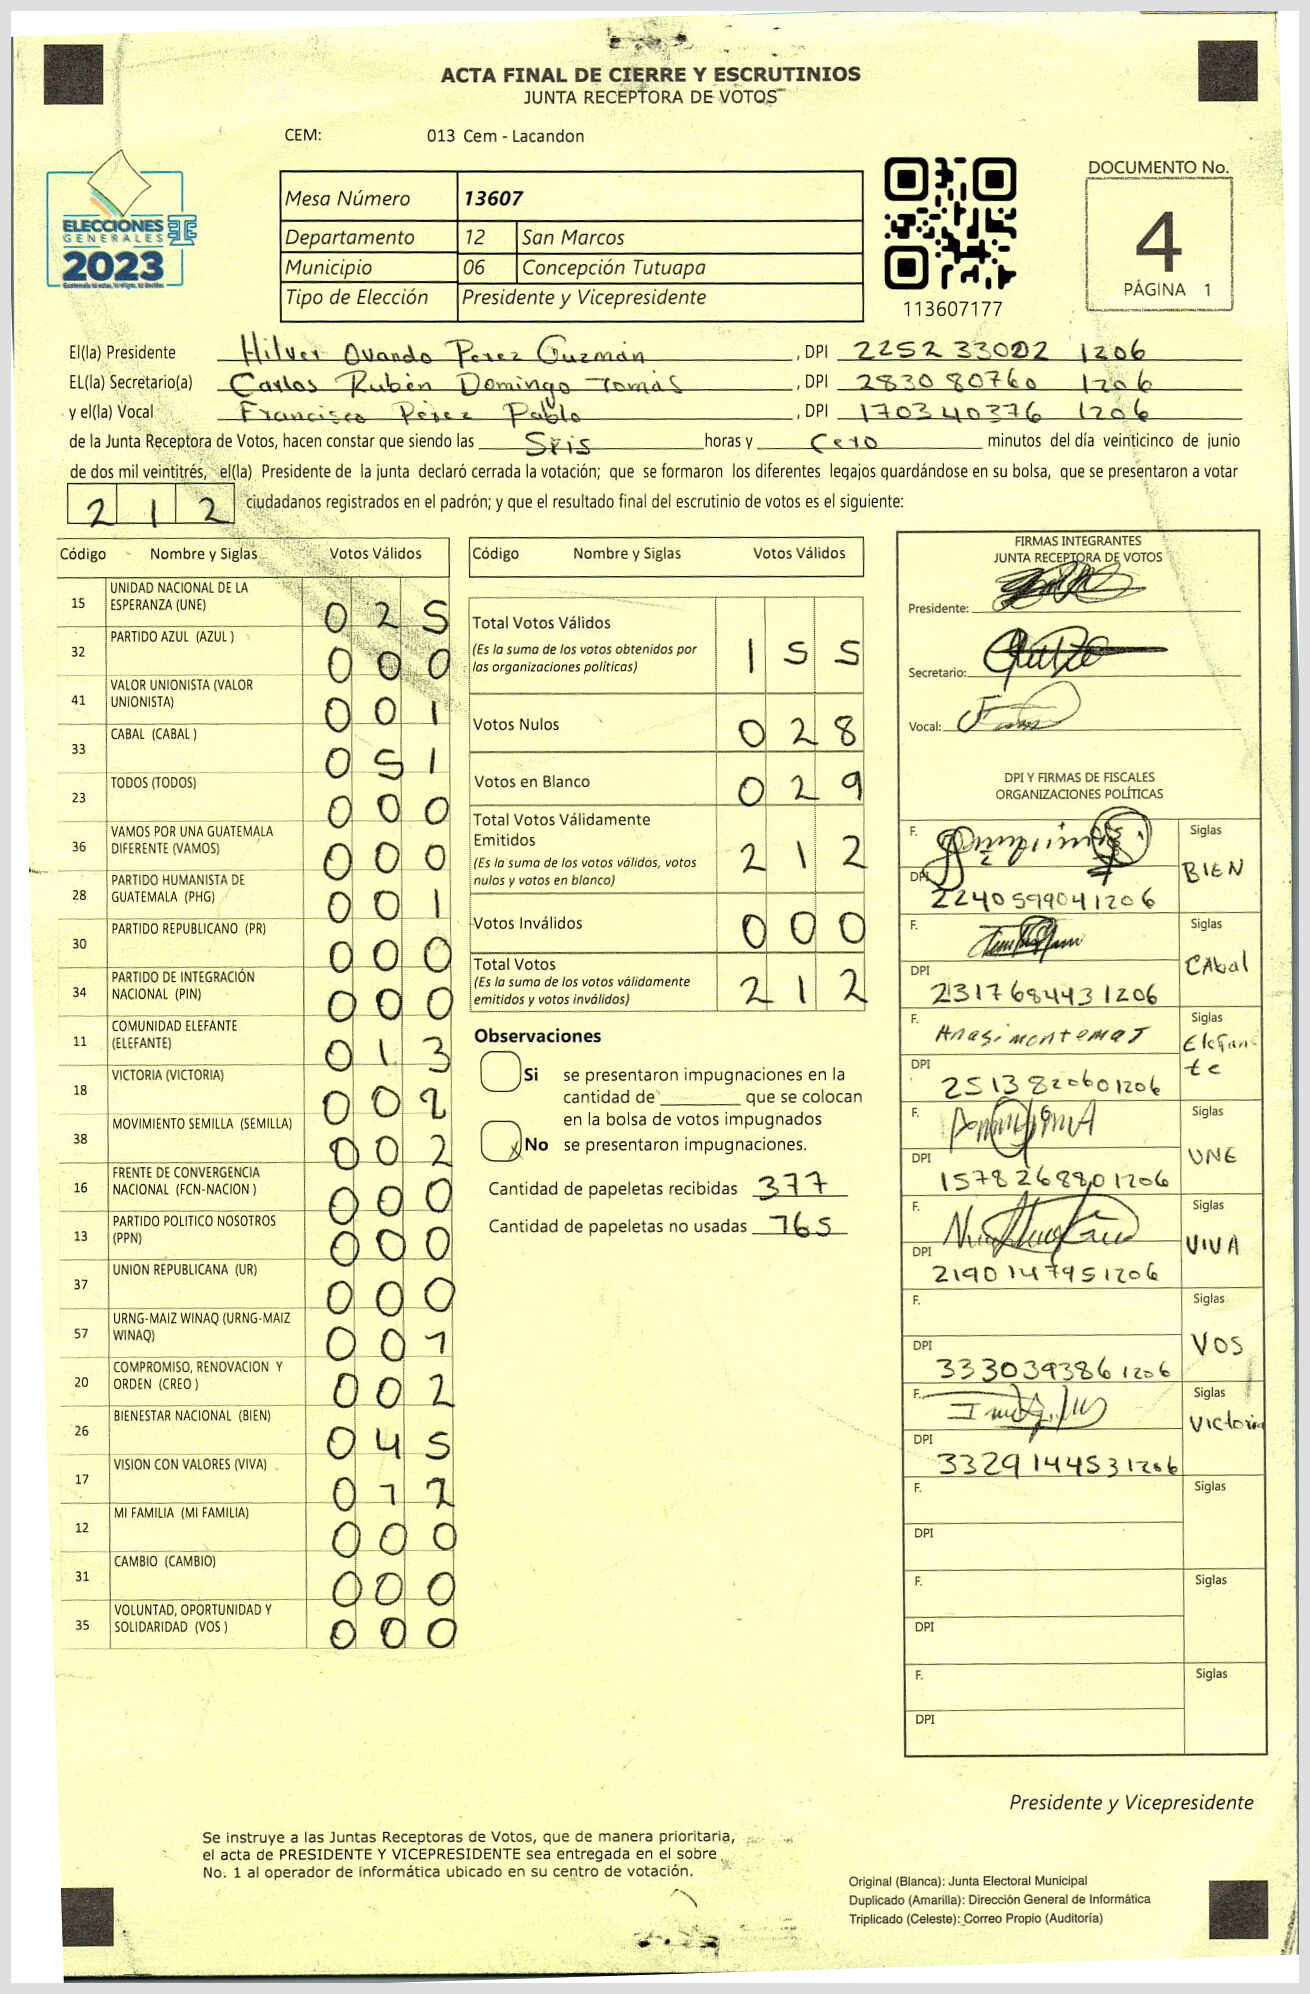 ACTA FINAL DE CIERRE Y ESCRUTINIOS
JUNTA RECEPTORA DE VOTOS
CEM: 013 Cem - Lacandon
ELECCIONES
GENERALES
2023
Mesa Número 13607
Departamento 12 San Marcos
Municipio 06 Concepción Tutuapa
Tipo de Elección Presidente y Vicepresidente
113607177
DOCUMENTO No.
4
PÁGINA 1
El(la) Presidente Hilver Ovando Perez Guzmán , DPI 2252 33002 1206
EL(la) Secretario(a) Carlos Rubén Domingo Tomás , DPI 2830 80760 1206
y el(la) Vocal Francisco Pérez Pablo , DPI 1703 40376 1206
de la Junta Receptora de Votos, hacen constar que siendo las Seis horas y Cero minutos del día veinticinco de junio
de dos mil veintitrés, el(la) Presidente de la junta declaró cerrada la votación; que se formaron los diferentes legajos quardándose en su bolsa, que se presentaron a votar
212 ciudadanos registrados en el padrón; y que el resultado final del escrutinio de votos es el siguiente:
Código Nombre y Siglas Votos Válidos
15 UNIDAD NACIONAL DE LA
ESPERANZA (UNE) 025
32 PARTIDO AZUL (AZUL ) 000
41 VALOR UNIONISTA (VALOR
UNIONISTA) 001
33 CABAL (CABAL ) 051
23 TODOS (TODOS) 000
36 VAMOS POR UNA GUATEMALA
DIFERENTE (VAMOS) 000
28 PARTIDO HUMANISTA DE
GUATEMALA (PHG) 001
30 PARTIDO REPUBLICANO (PR) 000
34 PARTIDO DE INTEGRACIÓN
NACIONAL (PIN) 000
11 COMUNIDAD ELEFANTE
(ELEFANTE) 013
18 VICTORIA (VICTORIA) 002
38 MOVIMIENTO SEMILLA (SEMILLA) 002
16 FRENTE DE CONVERGENCIA
NACIONAL (FCN-NACION ) 000
13 PARTIDO POLITICO NOSOTROS
(PPN) 000
37 UNION REPUBLICANA (UR) 000
57 URNG-MAIZ WINAQ (URNG-MAIZ
WINAQ) 001
20 COMPROMISO, RENOVACION Y
ORDEN (CREO ) 002
26 BIENESTAR NACIONAL (BIEN) 045
17 VISION CON VALORES (VIVA) 012
12 MI FAMILIA (MI FAMILIA) 000
31 CAMBIO (CAMBIO) 000
35 VOLUNTAD, OPORTUNIDAD Y
SOLIDARIDAD (VOS ) 000
Código Nombre y Siglas Votos Válidos
Total Votos Válidos 155
(Es la suma de los votos obtenidos por
las organizaciones políticas)
Votos Nulos 028
Votos en Blanco 029
Total Votos Válidamente
Emitidos 212
(Es la suma de los votos válidos, votos
nulos y votos en blanco)
Votos Inválidos 000
Total Votos 212
(Es la suma de los votos válidamente
emitidos y votos inválidos)
Observaciones
Si se presentaron impugnaciones en la
cantidad de ________ que se colocan
en la bolsa de votos impugnados
x No se presentaron impugnaciones.
Cantidad de papeletas recibidas 377
Cantidad de papeletas no usadas 765
FIRMAS INTEGRANTES
JUNTA RECEPTORA DE VOTOS
Presidente:
Secretario:
Vocal:
DPI Y FIRMAS DE FISCALES
ORGANIZACIONES POLÍTICAS
F. Siglas
BIEN
DPI 2240599041206
F. Siglas
CAbal
DPI 2317684431206
F. Siglas
Elefante
DPI 2513820601206
F. Siglas
UNE
DPI 1578268801206
F. Siglas
VIVA
DPI 2190147951206
F. Siglas
VOS
DPI 3330393861206
F. Siglas
Victoria
DPI 3329144531206
F. Siglas
DPI
F. Siglas
DPI
F. Siglas
DPI
Presidente y Vicepresidente
Se instruye a las Juntas Receptoras de Votos, que de manera prioritaria,
el acta de PRESIDENTE Y VICEPRESIDENTE sea entregada en el sobre
No. 1 al operador de informática ubicado en su centro de votación.
Original (Blanca): Junta Electoral Municipal
Duplicado (Amarilla): Dirección General de Informática
Triplicado (Celeste): Correo Propio (Auditoría)